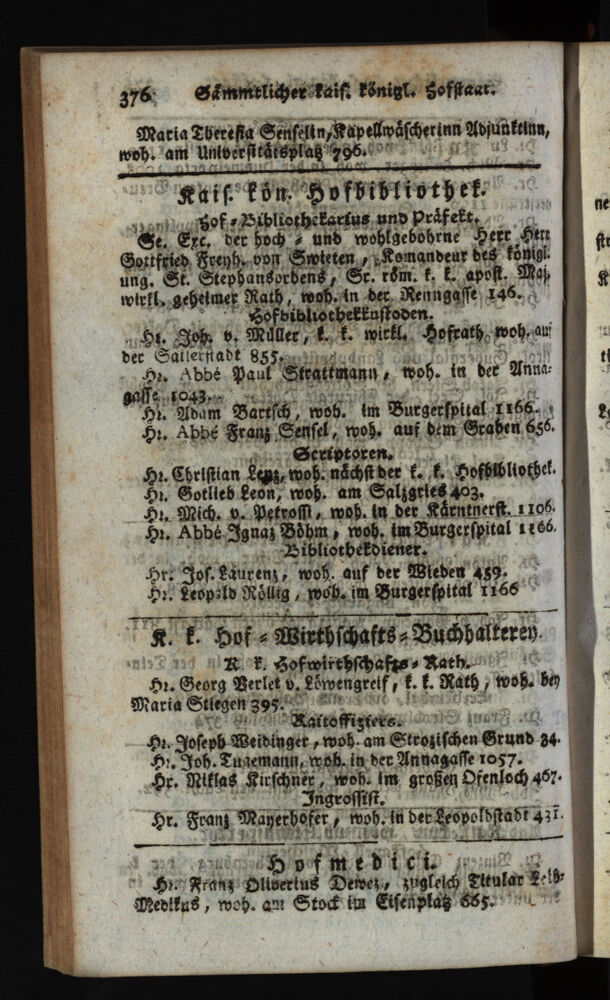 376 Sämmtlicher kais. königl. Hofstaat.
Maria Theresia Senselin, Kapellwäscherinn Adjunktinn,
woh. am Universitätsplatz 796.
Kais. kön. Hofbibliothek.
Hof-Bibliothekarius und Präfekt.
Se. Exc. der hoch- und wohlgebohrne Herr Herr
Gottfried Freyh. von Swieten, Komandeur des königl.
ung. St. Stephansordens, Sr. röm. k. k. apost. Maj.
wirkl. geheimer Rath, woh. in der Renngasse 146.
Hofbibliothekkustoden.
Hr. Joh. v. Müller, k. k. wirkl. Hofrath woh. auf
der Sailerstadt 855.
Hr. Abbé Paul Strattmann, woh. in der Anna-
gasse 1043.
Hr. Adam Bartsch, woh. im Burgerspital 1166.
Hr. Abbé Franz Sensel, woh. auf dem Graben 656.
Scriptoren.
Hr. Christian Lenz, woh. nächst der k. k. Hofbibliothek.
Hr. Gotlieb Leon, woh. am Salzgries 403.
Hr. Mich. v. Petrossi, woh. in der Kärntnerst. 1106.
Hr. Abbé Ignaz Böhm, woh. im Burgerspital 1166.
Bibliothekdiener.
Hr. Jos. Laurenz, woh. auf der Wieden 459.
Hr. Leopold Röllig, woh. im Burgerspital 1166
K. k. Hof-Wirthschafts-Buchhalterey.
K. k. Hofwirthschafts-Rath.
Hr. Georg Verlet v. Löwengreif, k. k. Rath, woh. bey
Maria Stiegen 395.
Raitoffiziers.
Hr. Joseph Weidinger, woh. am Strozischen Grund 34.
Hr. Joh. Tuzemann, woh. in der Annagasse 1057.
Hr. Niklas Kirschner, woh. im großen Ofenloch 467.
Ingrossist.
Hr. Franz Mayerhofer, woh. in der Leopoldstadt 431.
Hofmedici.
Hr. Franz Oliverius Dewez, zugleich Titular Leib-
Medikus, woh. am Stock im Eisenplatz 665.